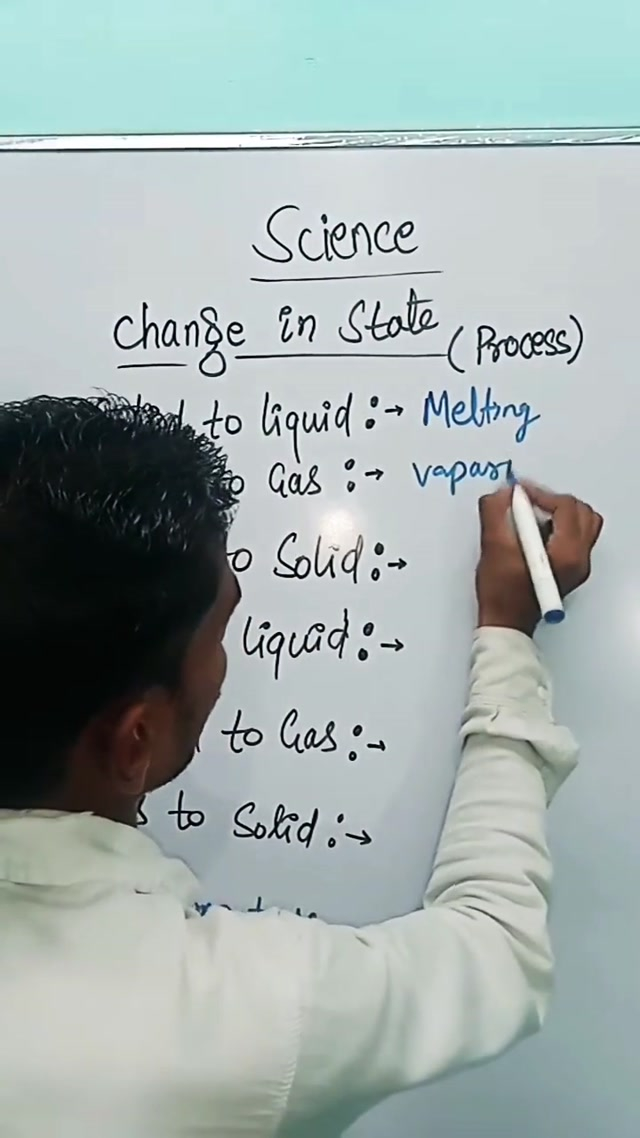 Science
Change in State (Process)
to liquid :→ Melting
Gas :→ vapas
Solid :→
liquid :→
to Gas :→
to Solid :→